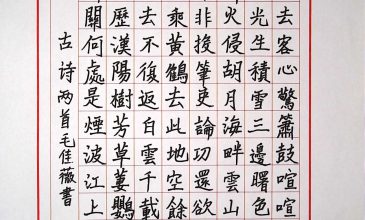 去客心驚簫鼓喧喧
光生積雪三邊曙色
火侵胡月海畔雲山
非投筆吏論功還欲
乘黃鶴去此地空餘
去不復返白雲千載
歷漢陽樹芳草萋鸚
關何處是煙波江上
古诗两首毛佳薇書